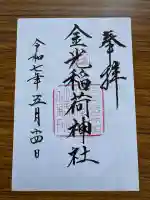 奉拝
金光稲荷神社
令和七年五月四日